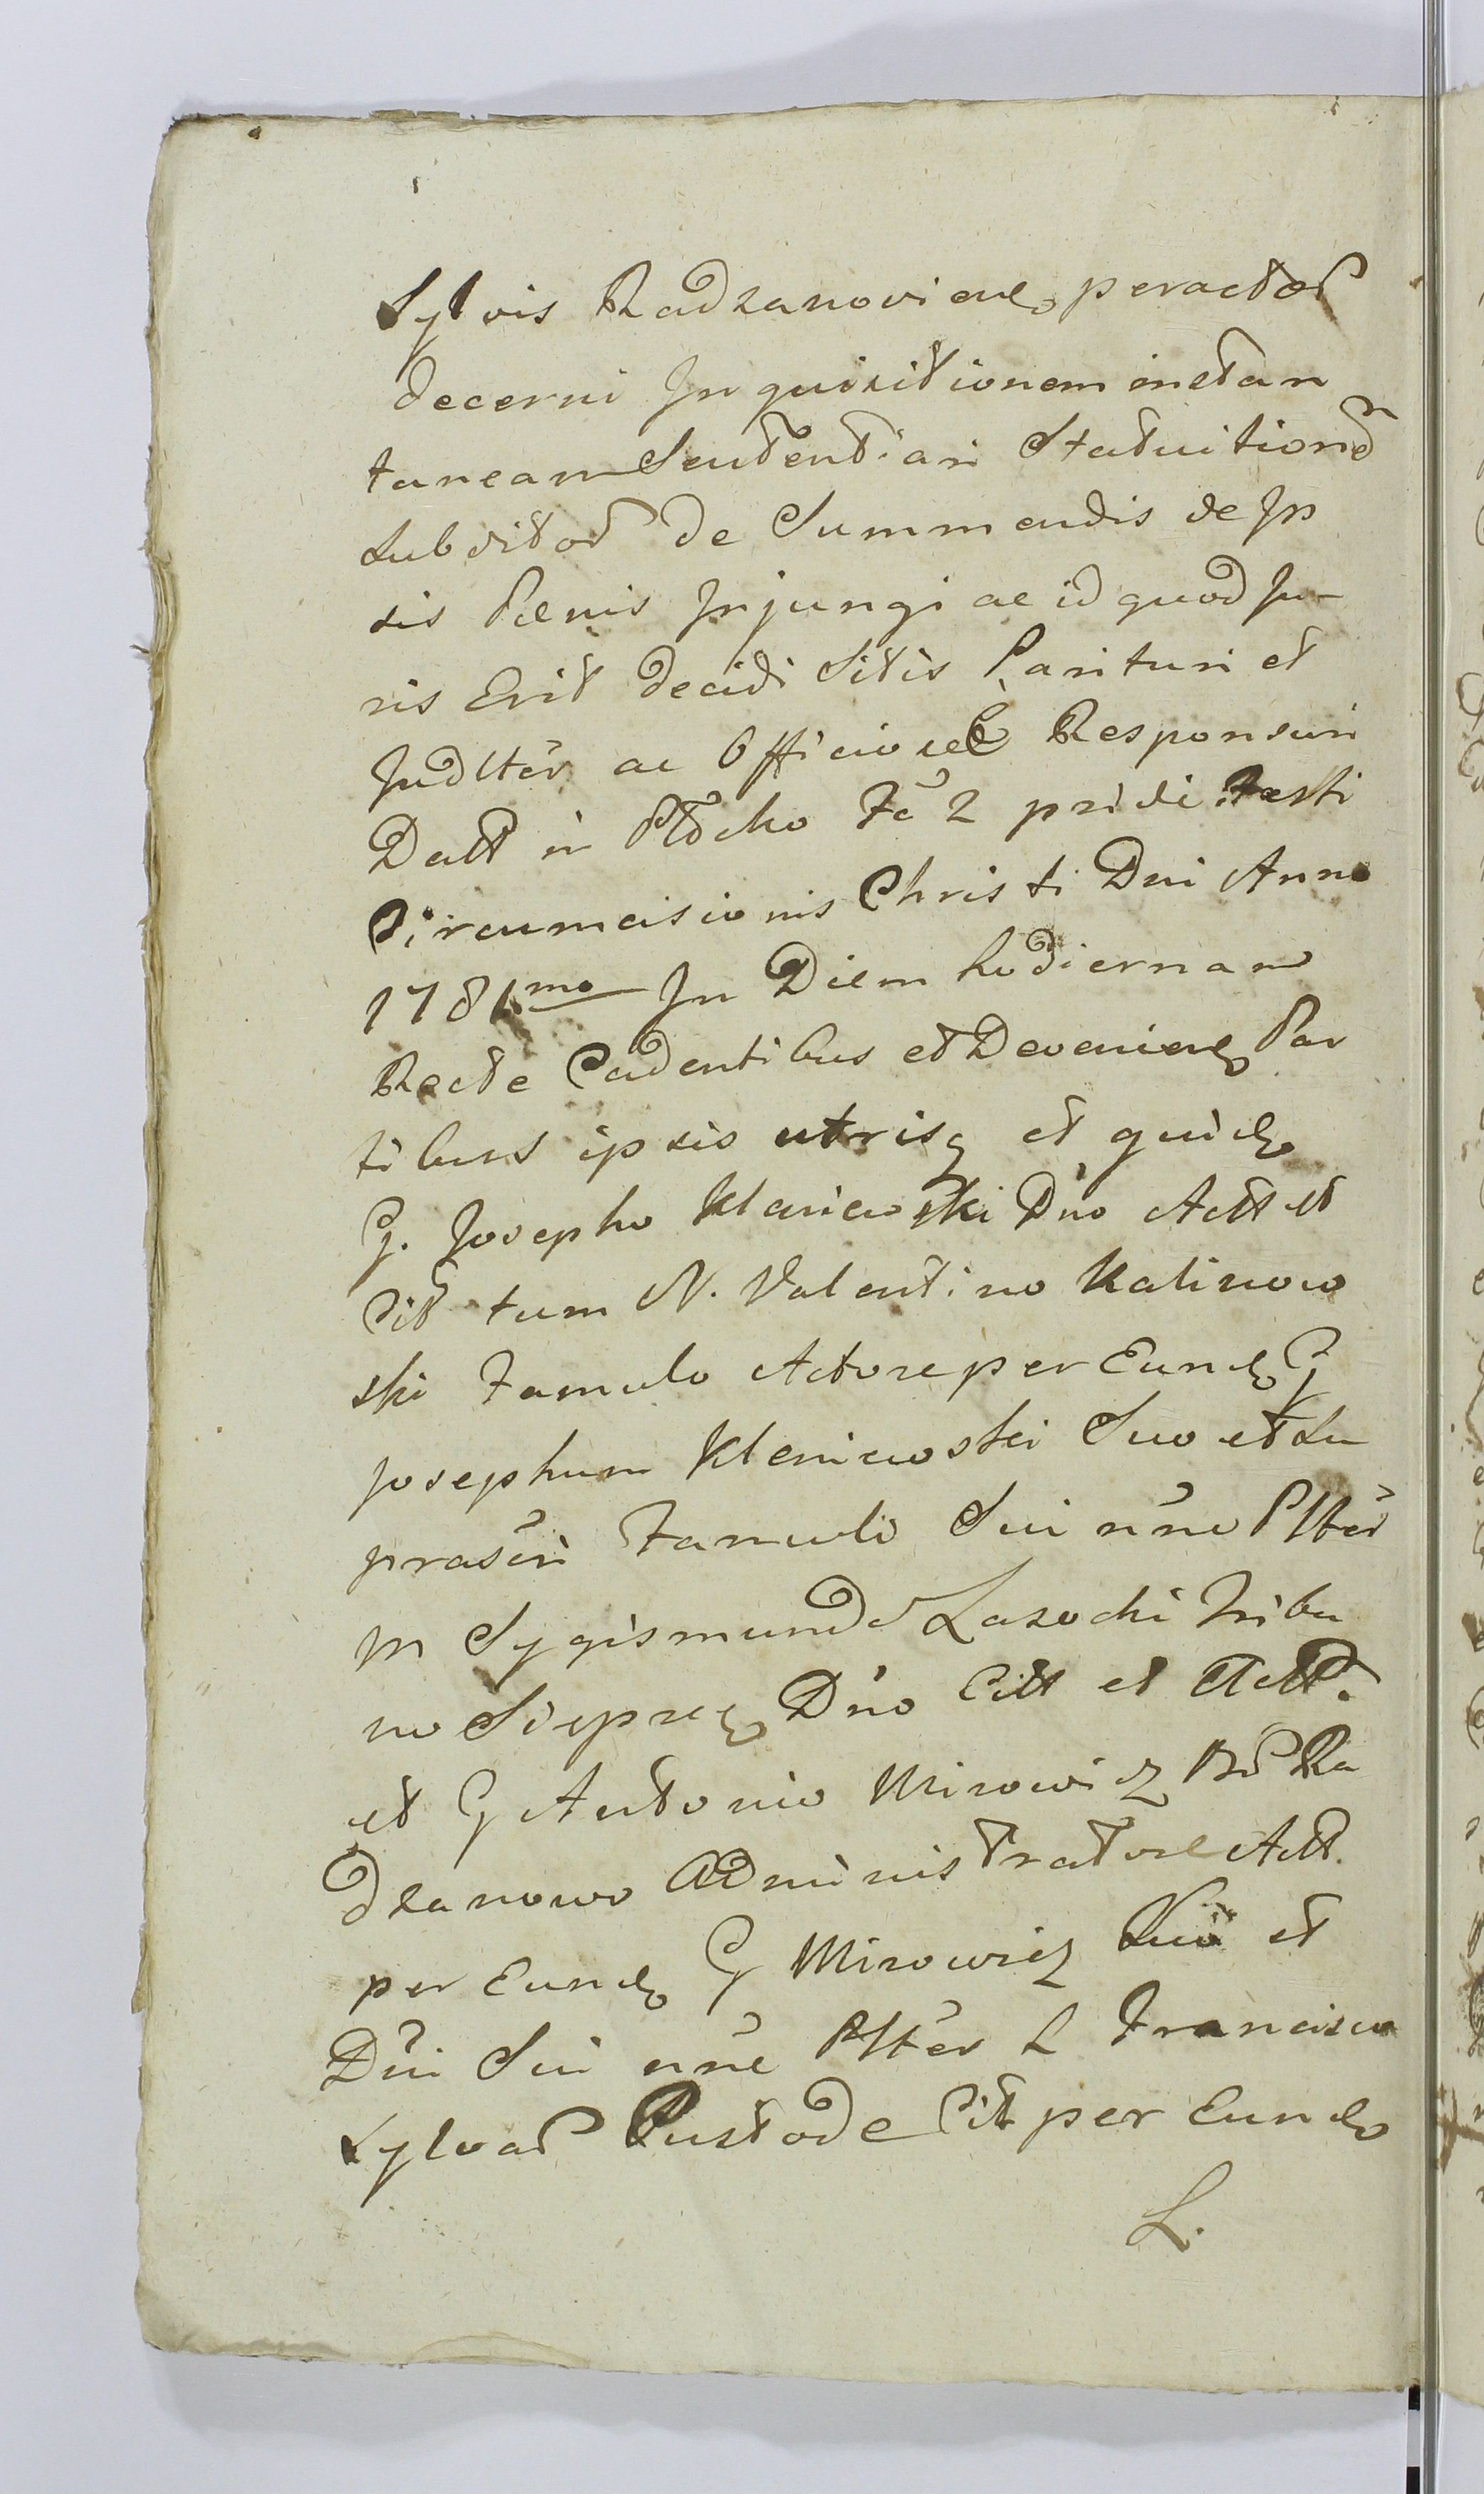 Sylvis Radzanovien peractor
decerni Inquisitionem instan
taneam Sententiari Statuitione
subditor de Summendis de Ip
sis Pœnis Injungi ac id quod Ju-
ris Erit decidi Sitis Parituri et
Judlter ac Officiose Responsuri
Datt in Plocko Fe 2 pridie Festi
Circumcisionis Christi Dni Anno
1781mo In Diem hodiernam
Recte Cadentibus et Devenien Par
tibus ipsis utrisq et quid
G. Josepho Kleniewski Dno Actt et
Citt tum N. Valentino Kalinow
ski Famulo Actore per Eund G
Josephum Kleniewski Suo et Su
praseri Famuli Sui nne Plter
M Sygismundo Lasocki Tribu
no Sieprcen Dno Citt et Actt.
et G Antonio Mirowicz Bo Ra
dzanowo Administratore Actt.
per Eund G Mirowicz Suo et
Dni Sui nne Plter L Francisco
Sylvar Custode Citt per Eund
L.